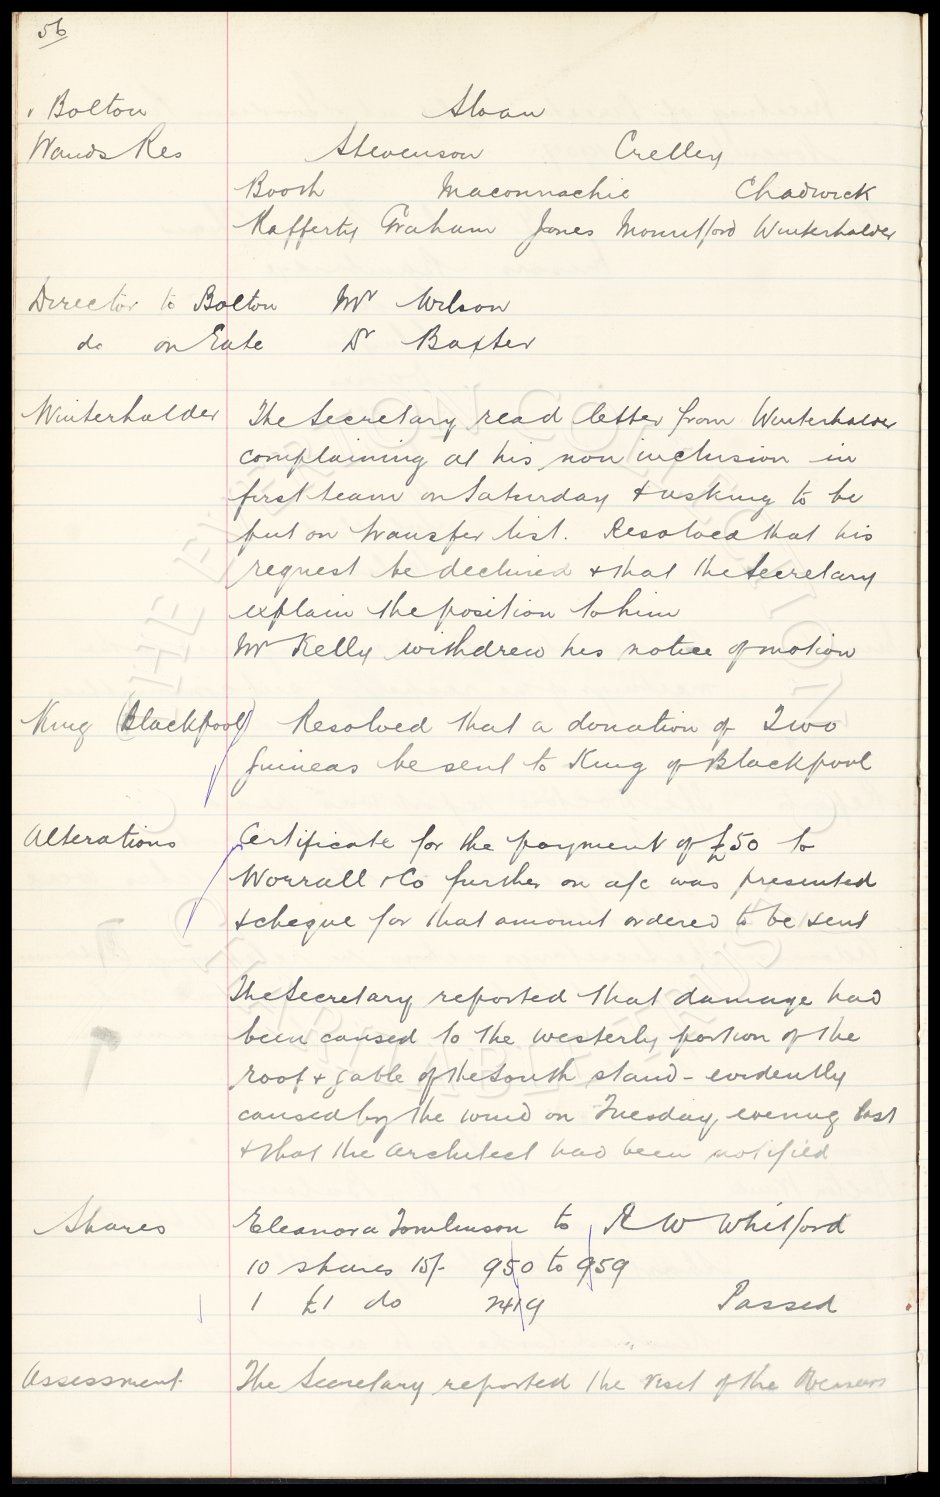 56
Bolton Sloan
Wands Res Stevenson Crelley
Booth Maconnachie Chadwick
Rafferty Graham Jones Mountford Winterhalder
Director to Bolton Mr Wilson
do on Gate Dr Baxter
Winterhalder The Secretary read letter from Winterhalder
complaining at his non inclusion in
first team on Saturday & asking to be
put on transfer list. Resolved that his
request be declined & that the Secretary
explain the position to him
Mr Kelly withdrew his notice of motion
King (Blackpool) Resolved that a donation of Two
Guineas be sent to King of Blackpool
Alterations Certificate for the payment of £50 to
Worrall & Co further on a/c was presented
& cheque for that amount ordered to be sent
The Secretary reported that damage had
been caused to the westerly portion of the
roof & gable of the South stand - evidently
caused by the wind on Tuesday evening last
& that the architect had been notified
Shares Eleanora Tomlinson to R W Whitford
10 shares 15/- 950 to 959
1 £1 do 2419 Passed
Assessment The Secretary reported the visit of the
THE EVERTON COLLECTION
CHARITABLE TRUST